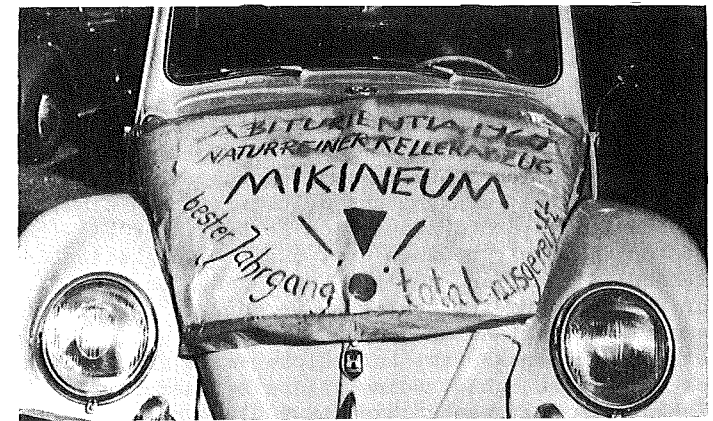 ABITURIENTIA 196
NATURREINER KELLERABZUG
MIKINEUM
bester Jahrgang
total ausgereift